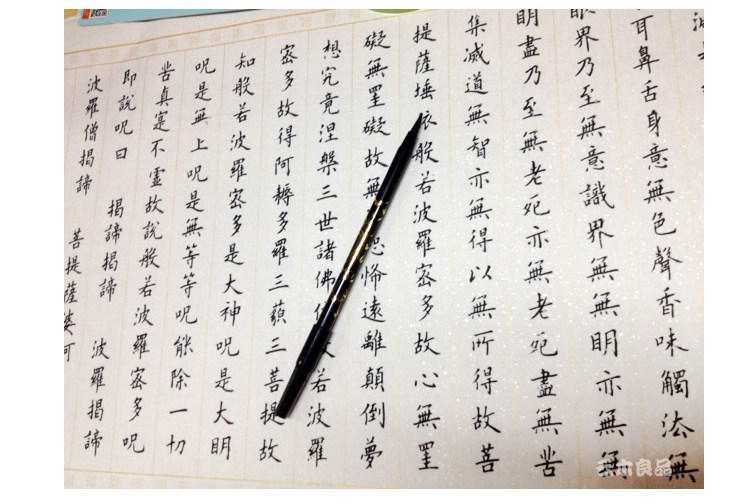 耳鼻舌身意無色聲香味觸法無
眼界乃至無意識界無無明亦無無
明盡乃至無老死亦無老死盡無苦
集滅道無智亦無得以無所得故菩
提薩埵依般若波羅密多故心無罣
礙無罣礙故無恐怖遠離顛倒夢
想究竟涅槃三世諸佛若波羅
密多故得阿耨多羅三藐三菩提故
知般若波羅密多是大神呪是大明
呪是無上呪是無等等呪能除一切
苦真寔不虛故說般若波羅密多呪
即說呪曰 揭諦揭諦 波羅揭諦
波羅僧揭諦 菩提薩婆訶